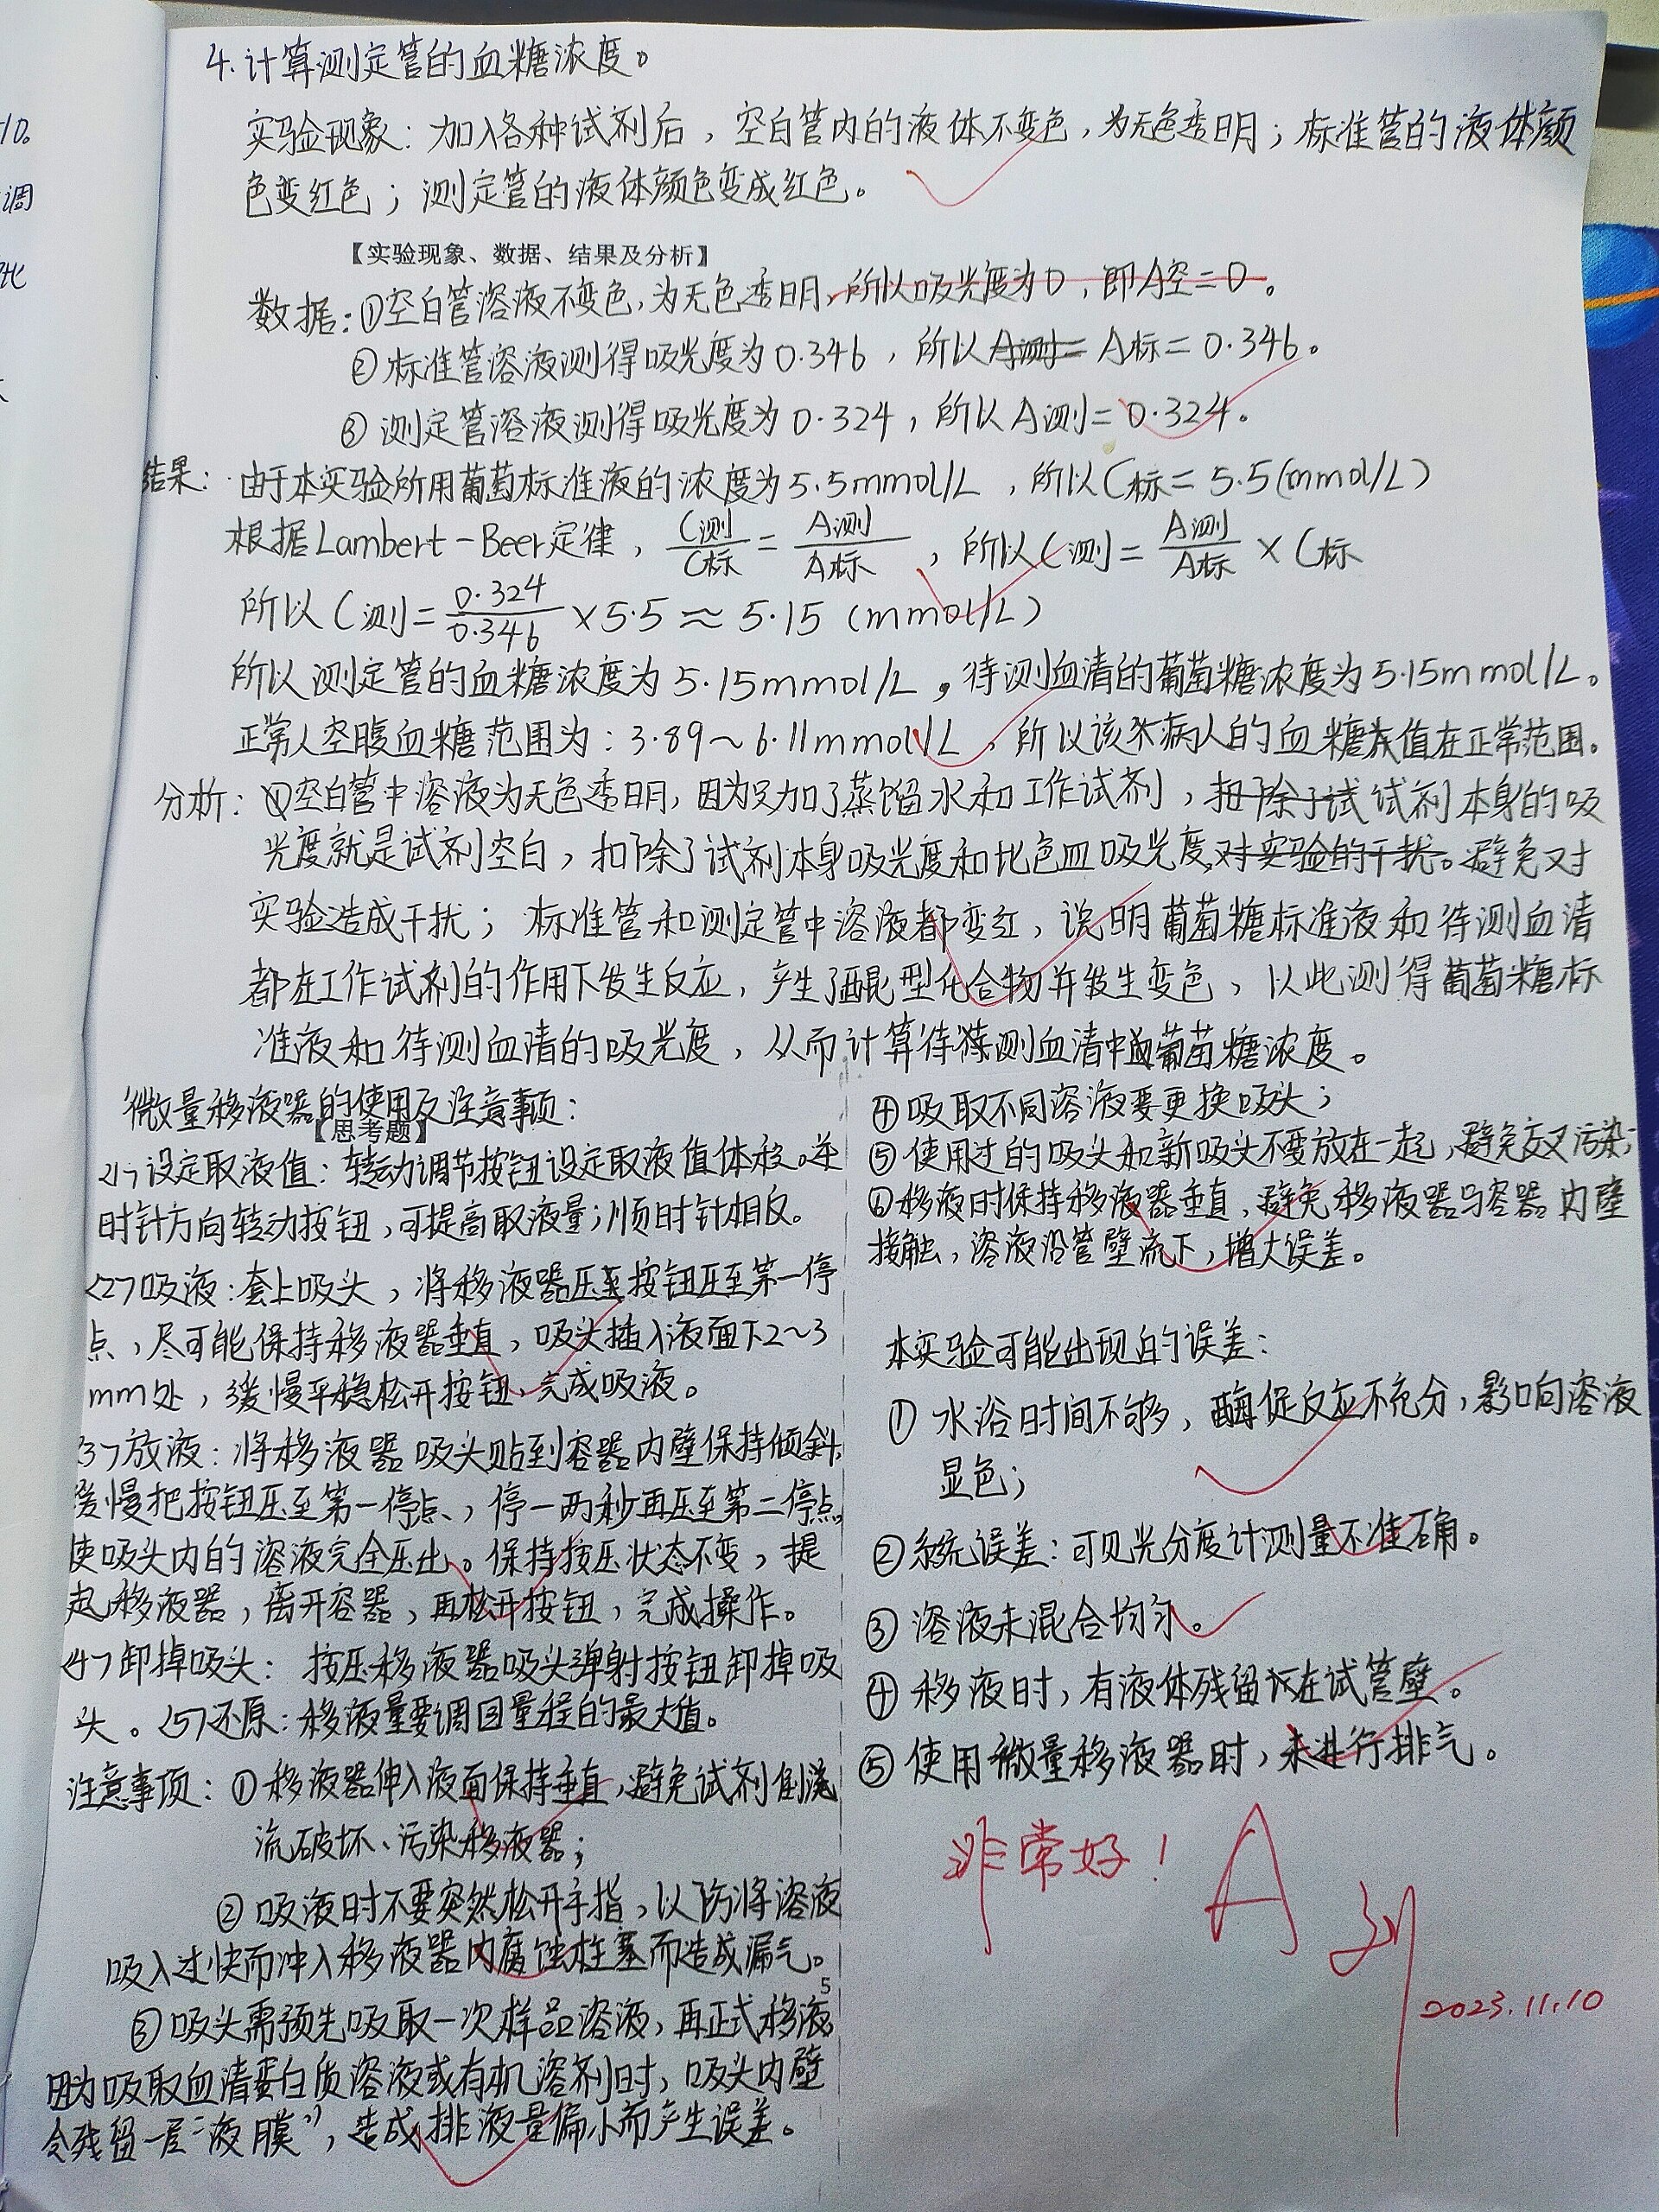 4.计算测定管的血糖浓度。
实验现象：加入各种试剂后，空白管内的液体不变色，为无色透明；标准管的液体颜
色变红色；测定管的液体颜色变成红色。
【实验现象、数据、结果及分析】
数据：①空白管溶液不变色，为无色透明，所以吸光度为0，即A空=0。
②标准管溶液测得吸光度为0.346，所以A测= A标=0.346。
③测定管溶液测得吸光度为0.324，所以A测=0.324。
结果：由于本实验所用葡萄标准液的浓度为5.5mmol/L，所以C标=5.5(mmol/L)
根据Lambert-Beer定律，C测/C标=A测/A标，所以C测=A测/A标×C标
所以C测=0.324/0.346×5.5≈5.15 (mmol/L)
所以测定管的血糖浓度为5.15mmol/L，待测血清的葡萄糖浓度为5.15mmol/L。
正常人空腹血糖范围为：3.89~6.11mmol/L，所以该病人的血糖值在正常范围。
分析：①空白管中溶液为无色透明，因为只加了蒸馏水和工作试剂，扣除了试试剂本身的吸
光度就是试剂空白，扣除了试剂本身吸光度和比色皿吸光度对实验的干扰。避免对
实验造成干扰；标准管和测定管中溶液都变红，说明葡萄糖标准液和待测血清
都在工作试剂的作用下发生反应，产生了醌型化合物并发生变色，以此测得葡萄糖标
准液和待测血清的吸光度，从而计算待测血清中葡萄糖浓度。
微量移液器的使用及注意事项：
【思考题】
<1>设定取液值：转动调节按钮设定取液值体积。逆
时针方向转动按钮，可提高取液量；顺时针相反。
<2>吸液：套上吸头，将移液器压至按钮压至第一停
点，尽可能保持移液器垂直，吸头插入液面下2~3
mm处，缓慢平稳松开按钮，完成吸液。
<3>放液：将移液器吸头贴到容器内壁保持倾斜，
缓慢把按钮压至第一停点，停一两秒再压至第二停点，
使吸头内的溶液完全压出。保持按压状态不变，提
起移液器，离开容器，再松开按钮，完成操作。
<4>卸掉吸头：按压移液器吸头弹射按钮卸掉吸
头。<5>还原：移液量要调回量程的最大值。
注意事项：①移液器伸入液面保持垂直，避免试剂倒流
流破坏、污染移液器；
②吸液时不要突然松开手指，以防将溶液
吸入过快而冲入移液器内腐蚀柱塞而造成漏气。
③吸头需预先吸取一次样品溶液，再正式移液
因为吸取血清蛋白质溶液或有机溶剂时，吸头内壁
会残留一层“液膜”，造成排液量偏小而产生误差。
5
④吸取不同溶液要更换吸头；
⑤使用过的吸头和新吸头不要放在一起，避免交叉污染；
⑥移液时保持移液器垂直，避免移液器与容器内壁
接触，溶液沿管壁流下，增大误差。
本实验可能出现的误差：
①水浴时间不够，酶促反应不充分，影响溶液
显色；
②系统误差：可见光分度计测量不准确。
③溶液未混合均匀。
④移液时，有液体残留在试管壁。
⑤使用微量移液器时，未进行排气。
非常好！ A
2023.11.10
10。
调